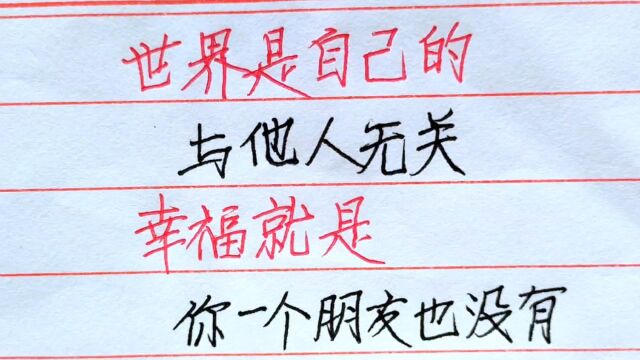 世界是自己的
与他人无关
幸福就是
你一个朋友也没有